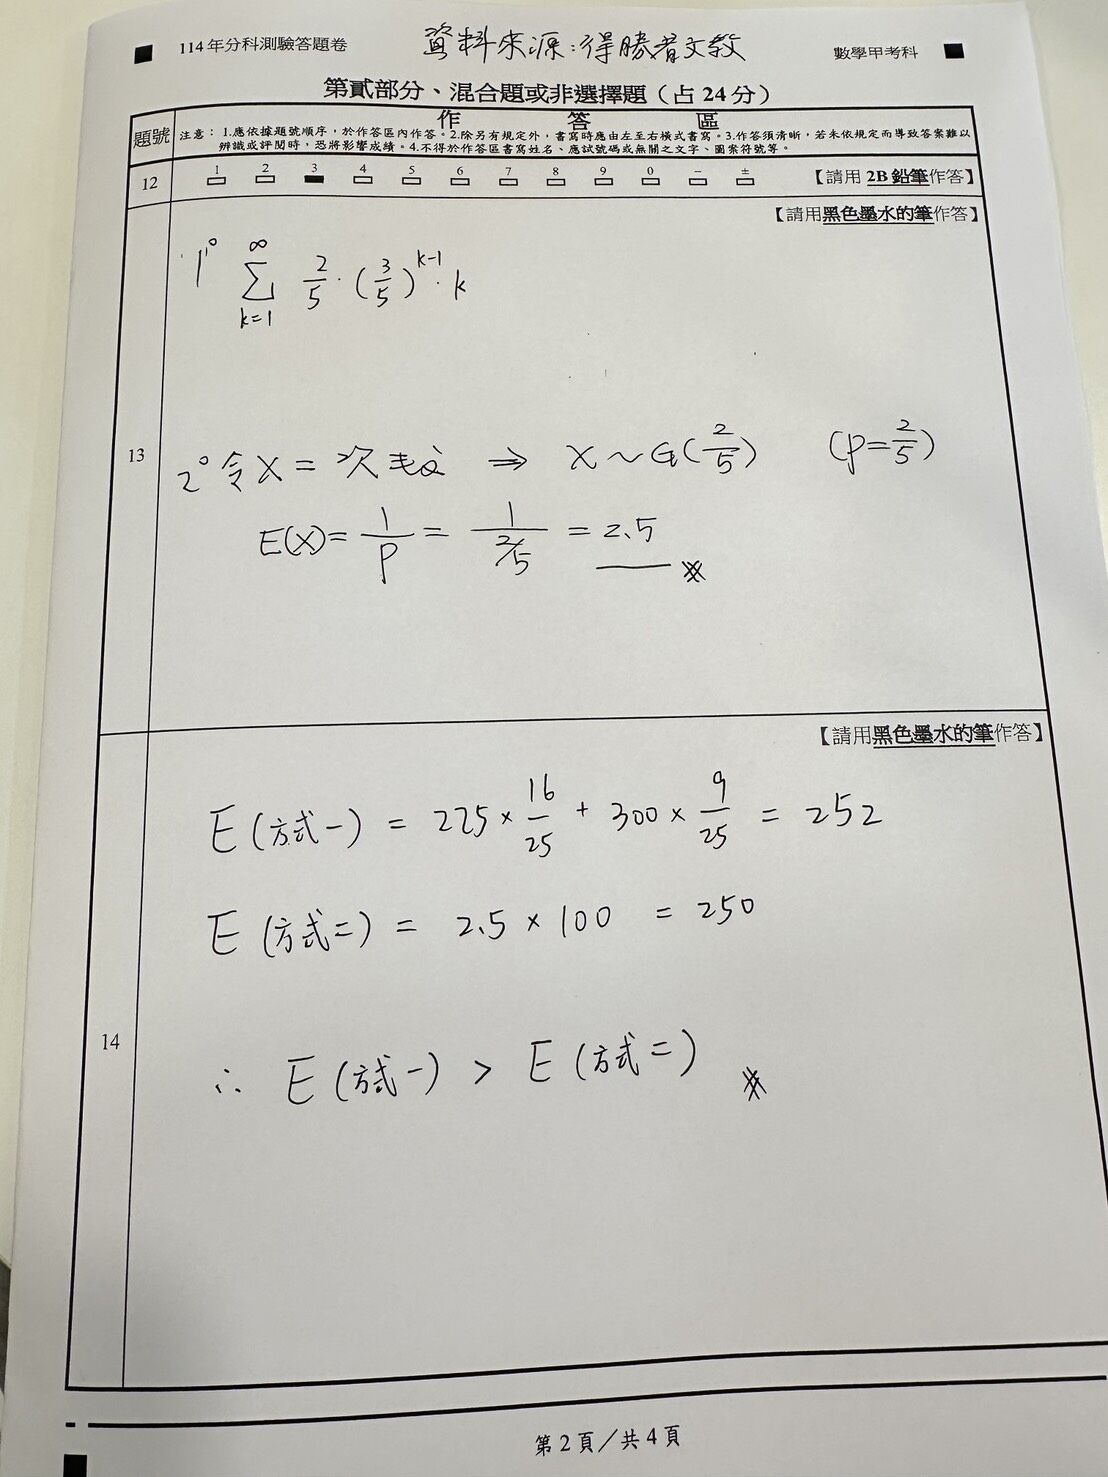 114年分科測驗答題卷
資料來源:得勝者文教
數學甲考科
第貳部分、混合題或非選擇題（占24分）
題號
作 答 區
注意：1.應依據題號順序，於作答區內作答。2.除另有規定外，書寫時應由左至右橫式書寫。3.作答須清晰，若未依規定而導致答案難以
辨識或評閱時，恐將影響成績。4.不得於作答區書寫姓名、應試號碼或無關之文字、圖案符號等。
12
1 2 3 4 5 6 7 8 9 0 − ±
【請用 2B 鉛筆作答】
13
【請用黑色墨水的筆作答】
1° ∑_{k=1}^{∞} 2/5 · (3/5)^{k-1} · k
2° 令X = 次數 ⇒ X ~ G(2/5) (p=2/5)
E(X) = 1/p = 1/(2/5) = 2.5
14
【請用黑色墨水的筆作答】
E (方式一) = 225 × 16/25 + 300 × 9/25 = 252
E (方式二) = 2.5 × 100 = 250
∴ E (方式一) > E (方式二)
第2頁／共4頁